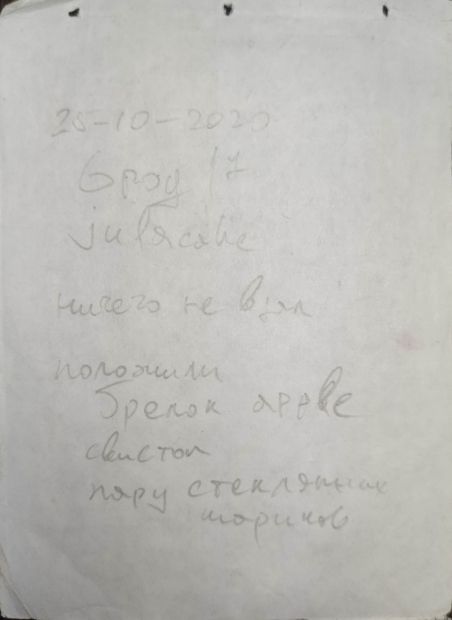 25-10-2020
брод 17
ничего не взял
положили
брелок apple
свисток
пару стеклянных
шариков